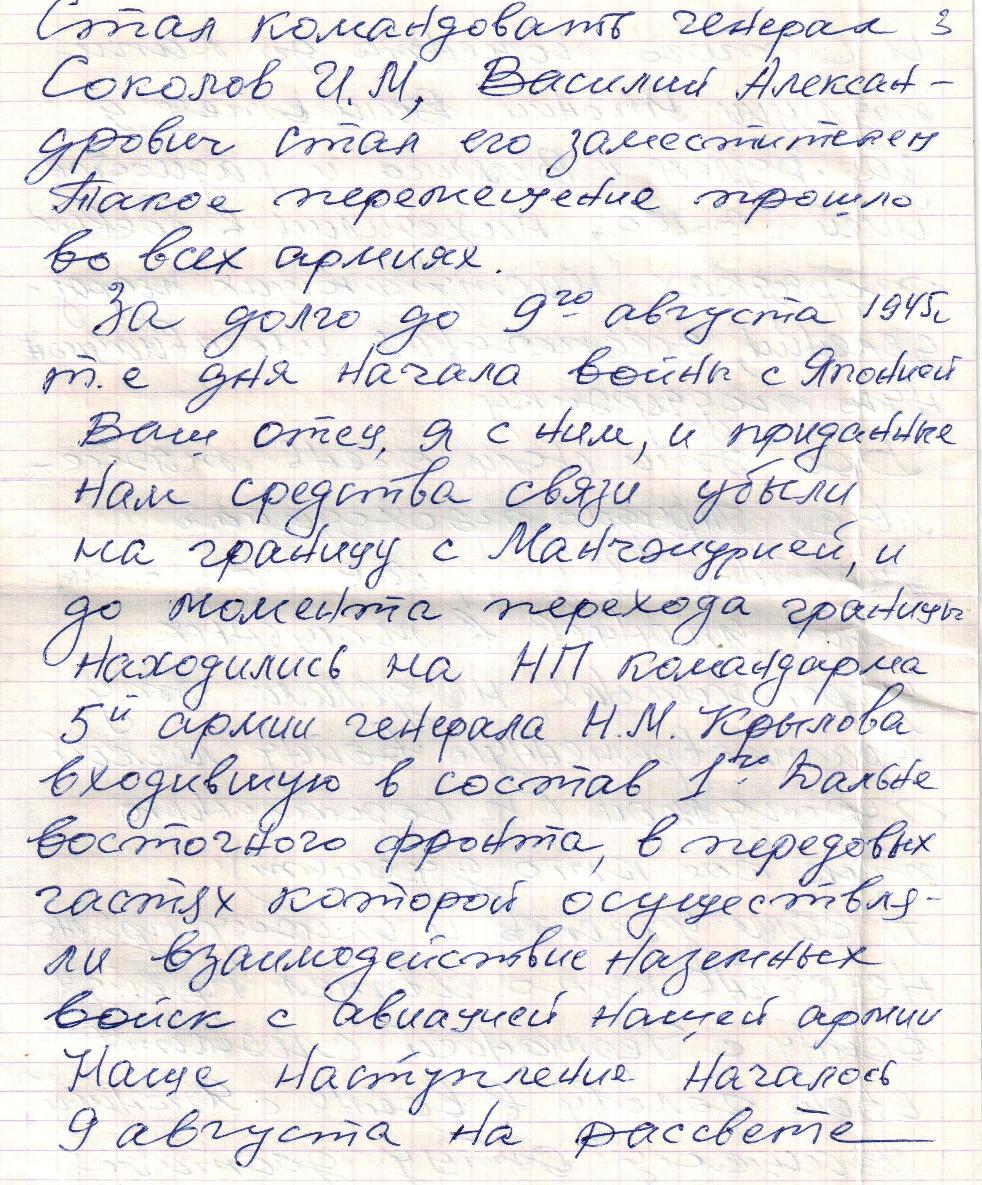 Стал командовать генерал 3
Соколов И.М, Василий Алексан-
дрович стал его заместителем
Такое перемещение прошло
во всех армиях.
За долго до 9го августа 1945г
т.е дня начала войны с Японией
Ваш отец, я с ним, и приданные
нам средства связи убыли
на границу с Манчжурией, и
до момента перехода границы
находились на НП командарма
5й армии генерала Н.М. Крылова
входившую в состав 1го Дальне
восточного фронта, в передовых
частях которой осуществля-
ли взаимодействие наземных
войск с авиацией нашей армии
Наше наступление началось
9 августа на рассвете